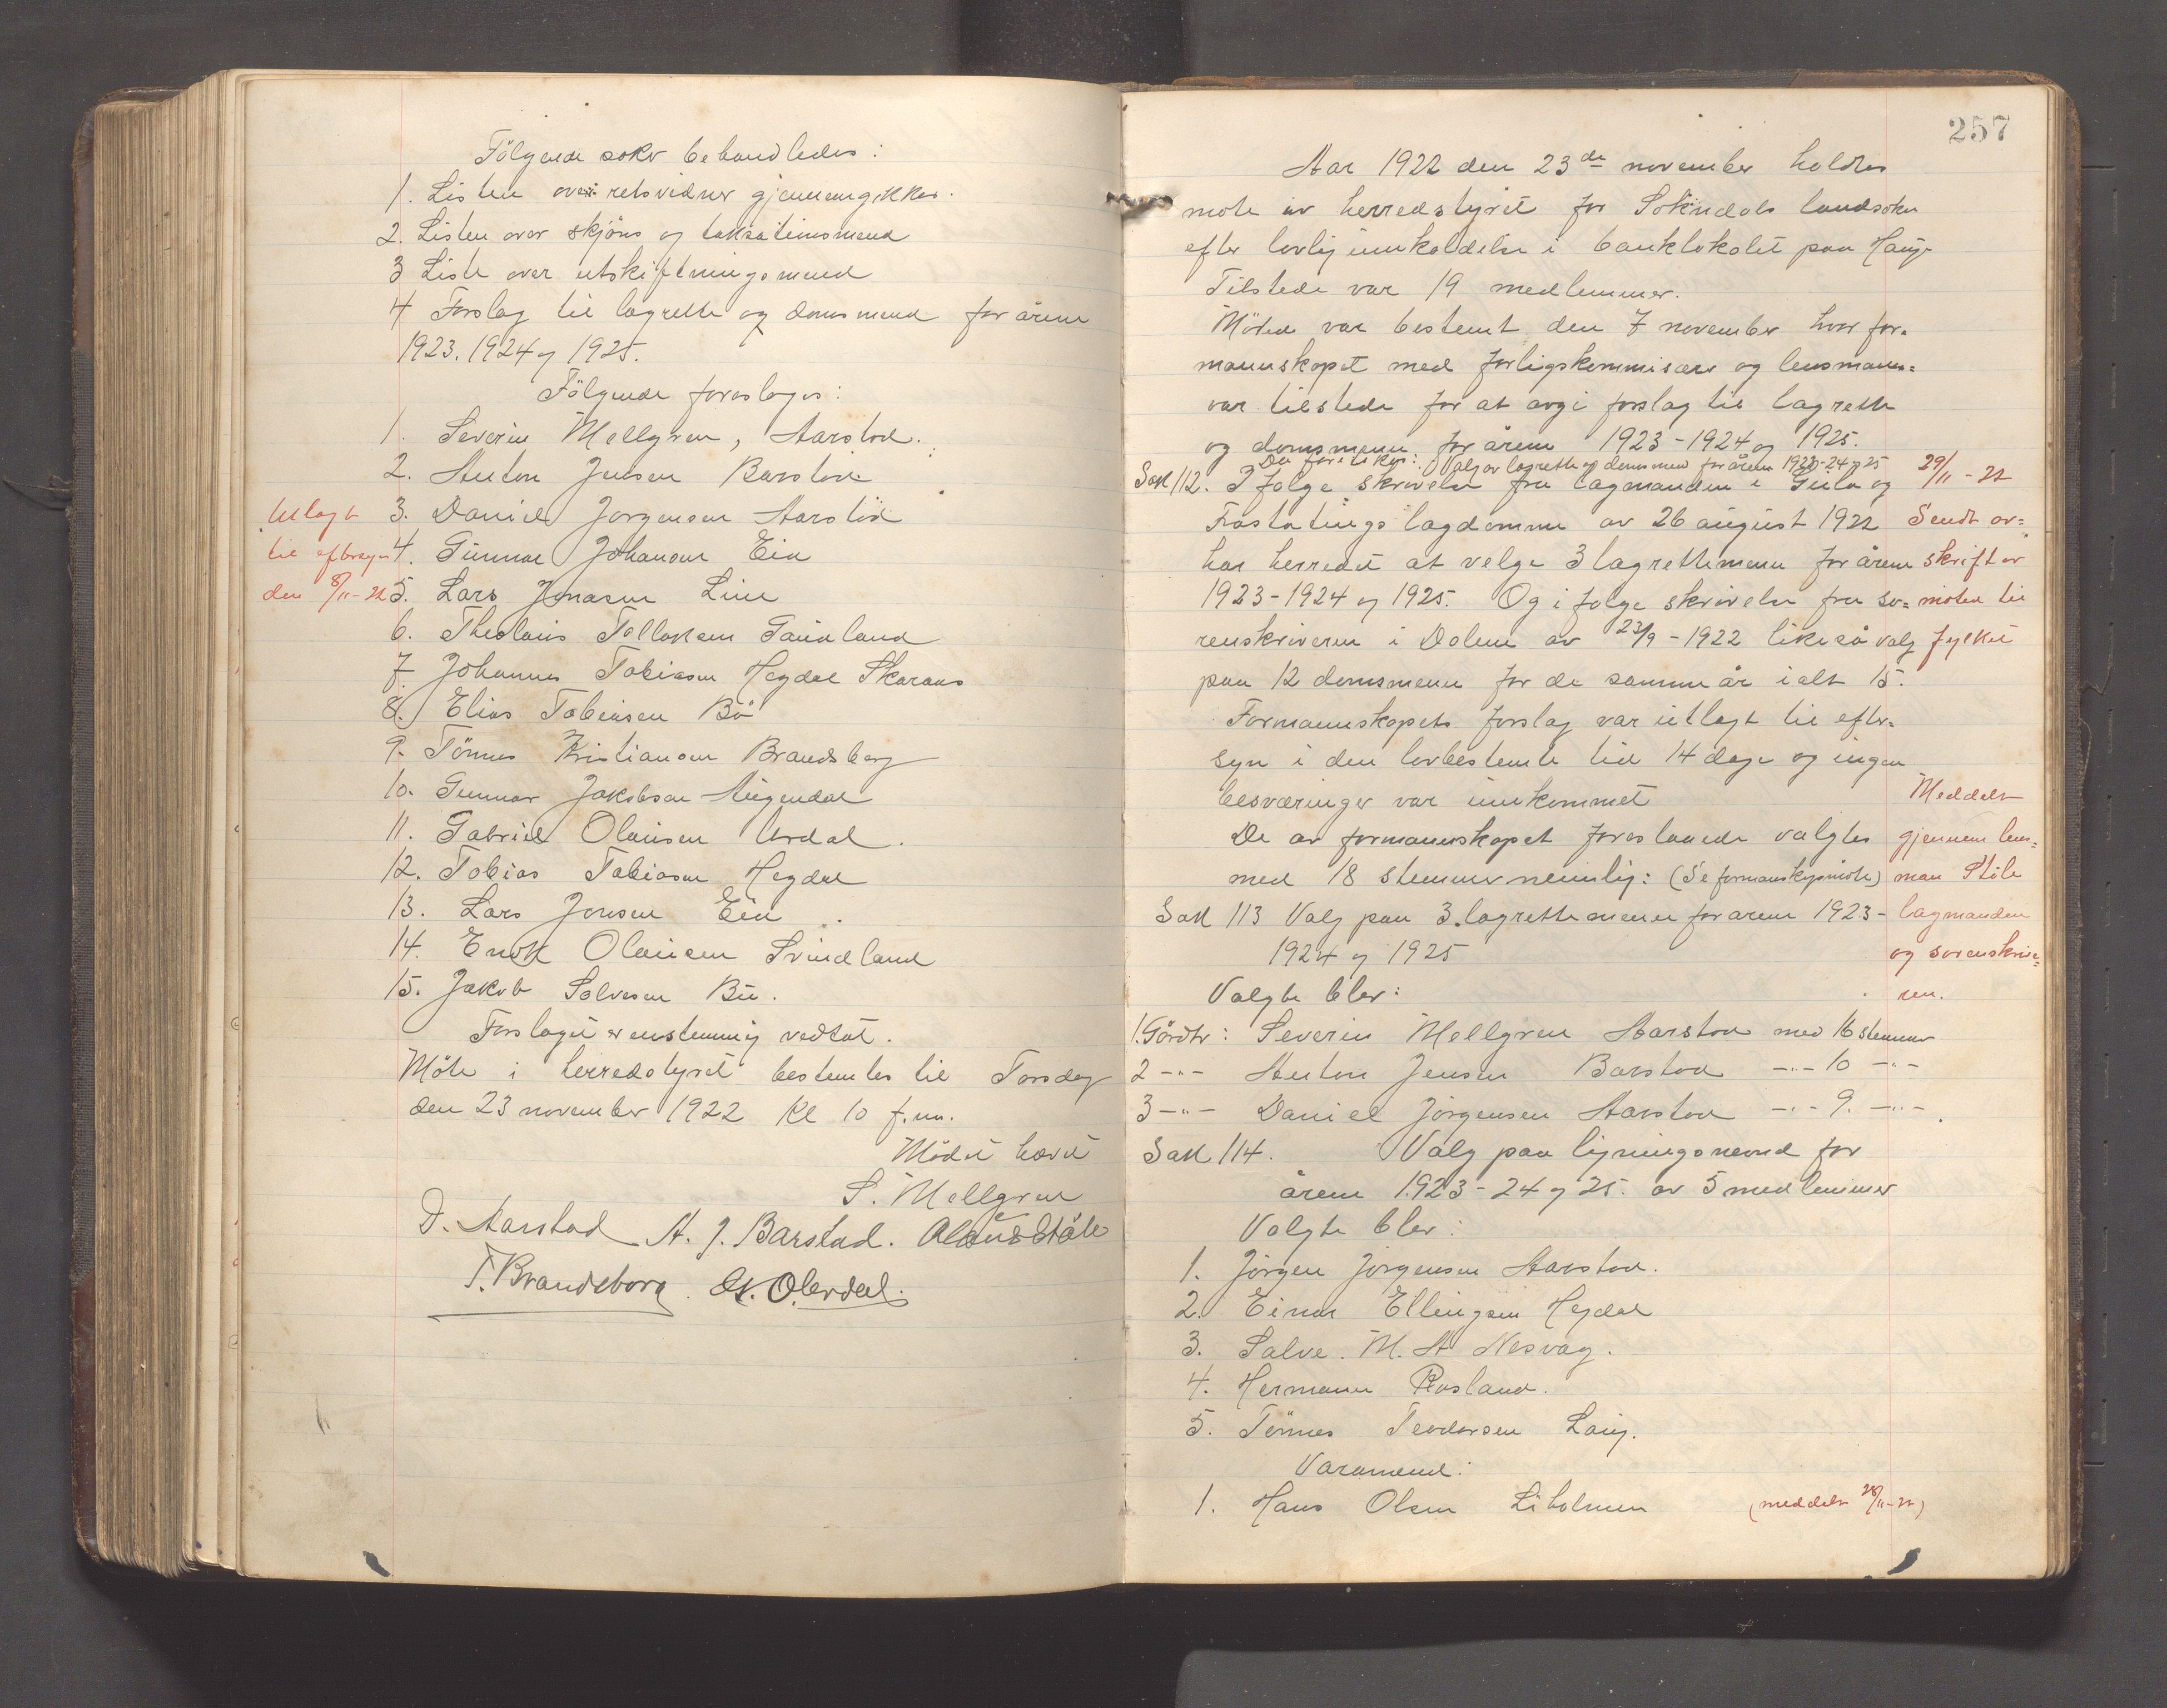 Følgende saker behandledes:
1. Listen over retsvidner gjennemgikkes.
2. Listen over skjøns og taksationsmend
3 Liste over utskiftningsmend
4 Forslag til lagrette og domsmend for årene
1923. 1924 og 1925.
Følgende foresloges:
1. Severin Mellgren, Aarstad.
2. Anton Jensen Barstad
3. Daniel Jørgensen Aarstad
4. Gunnar Johansen Eia
5. Lars Jonasen Line
6. Theolaus Tollaksen
7. Johannes Tobiasen Hegdal Skaraas
8. Elias Tobiasen Bø
9. Tønnes Kristiansen Brandsberg
10. Gunnar Jakobsen
11. Gabriel Olausen Urdal.
12. Tobias Tobiasen Hegdal
13. Lars Jonsen Eia.
14. Enok Olausen Svindland
15. Jakob Salvesen Bu.
Utlagt
til eftersyn
den 8/11-22
Forslaget er enstemmig vedtat.
Møte i herredstyret bestemtes til Torsdag
den 23 november 1922 Kl 10 f.m.
Mødet hævet
S. Mellgren
D. Aarstad A. J. Barstad.
T. Brandsberg.
257
Aar 1922 den 23de november holdtes
møte av herredstyret for Sokndals landsokn
efter lovlig innkaldelse i banklokalet paa Hauge
Tilstede var 19 medlemmer.
Møtet var bestemt den 7 november hvor for=
mannskapet med forligskommisær og lensmann=
var tilstede for at avgi forslag til lagrette
og domsmenn for årene 1923-1924 og 1925.
Valg av lagrette og domsmend for årene 1923-24 og 25
Sak 112. I følge skrivelse fra lagmanden i Gula og
Frostatings lagdømme av 26 august 1922
har herredet at velge 3 lagrettemenn for årene
1923-1924 og 1925. Og i følge skrivelse fra so=
renskriveren i Dalene av 23/9-1922 likeså valg
paa 12 domsmenn for de samme år ialt 15.
29/11-22
Sendt av=
skrift av
møtet til
fylket
Formannskapets forslag var utlagt til efter=
syn i den lovbestemte tid 14 dage og ingen
besværinger var innkommet
De av formannskapet foreslaaede valgtes
med 18 stemmer nemlig: (Se formanskapsmøte)
Sak 113 Valg paa 3 lagrettemenn for årene 1923-
1924 og 1925
Meddelt
gjennem lens=
man Støle
lagmanden
og sorenskrive=
ren.
Valgte blev:
1. Gårdbr: Severin Mellgren Aarstad med 16 stemmer
2 -"- Anton Jensen Barstad -"- 10 -"-
3 -"- Daniel Jørgensen Aarstad -"- 9. -"-
Sak 114. Valg paa ligningsnevnd for
årene 1923-24 og 25. av 5 medlemmer
Valgte blev:
1. Jørgen Jørgensen Aarstad.
2. Einar Ellingsen Hegdal
3. Salve M. A Nesvag.
4. Hermann Rosland.
5. Tønnes Teodorsen Laug.
Varamend:
1. Hans Olsen Liholmen (meddelt 28/11-22)